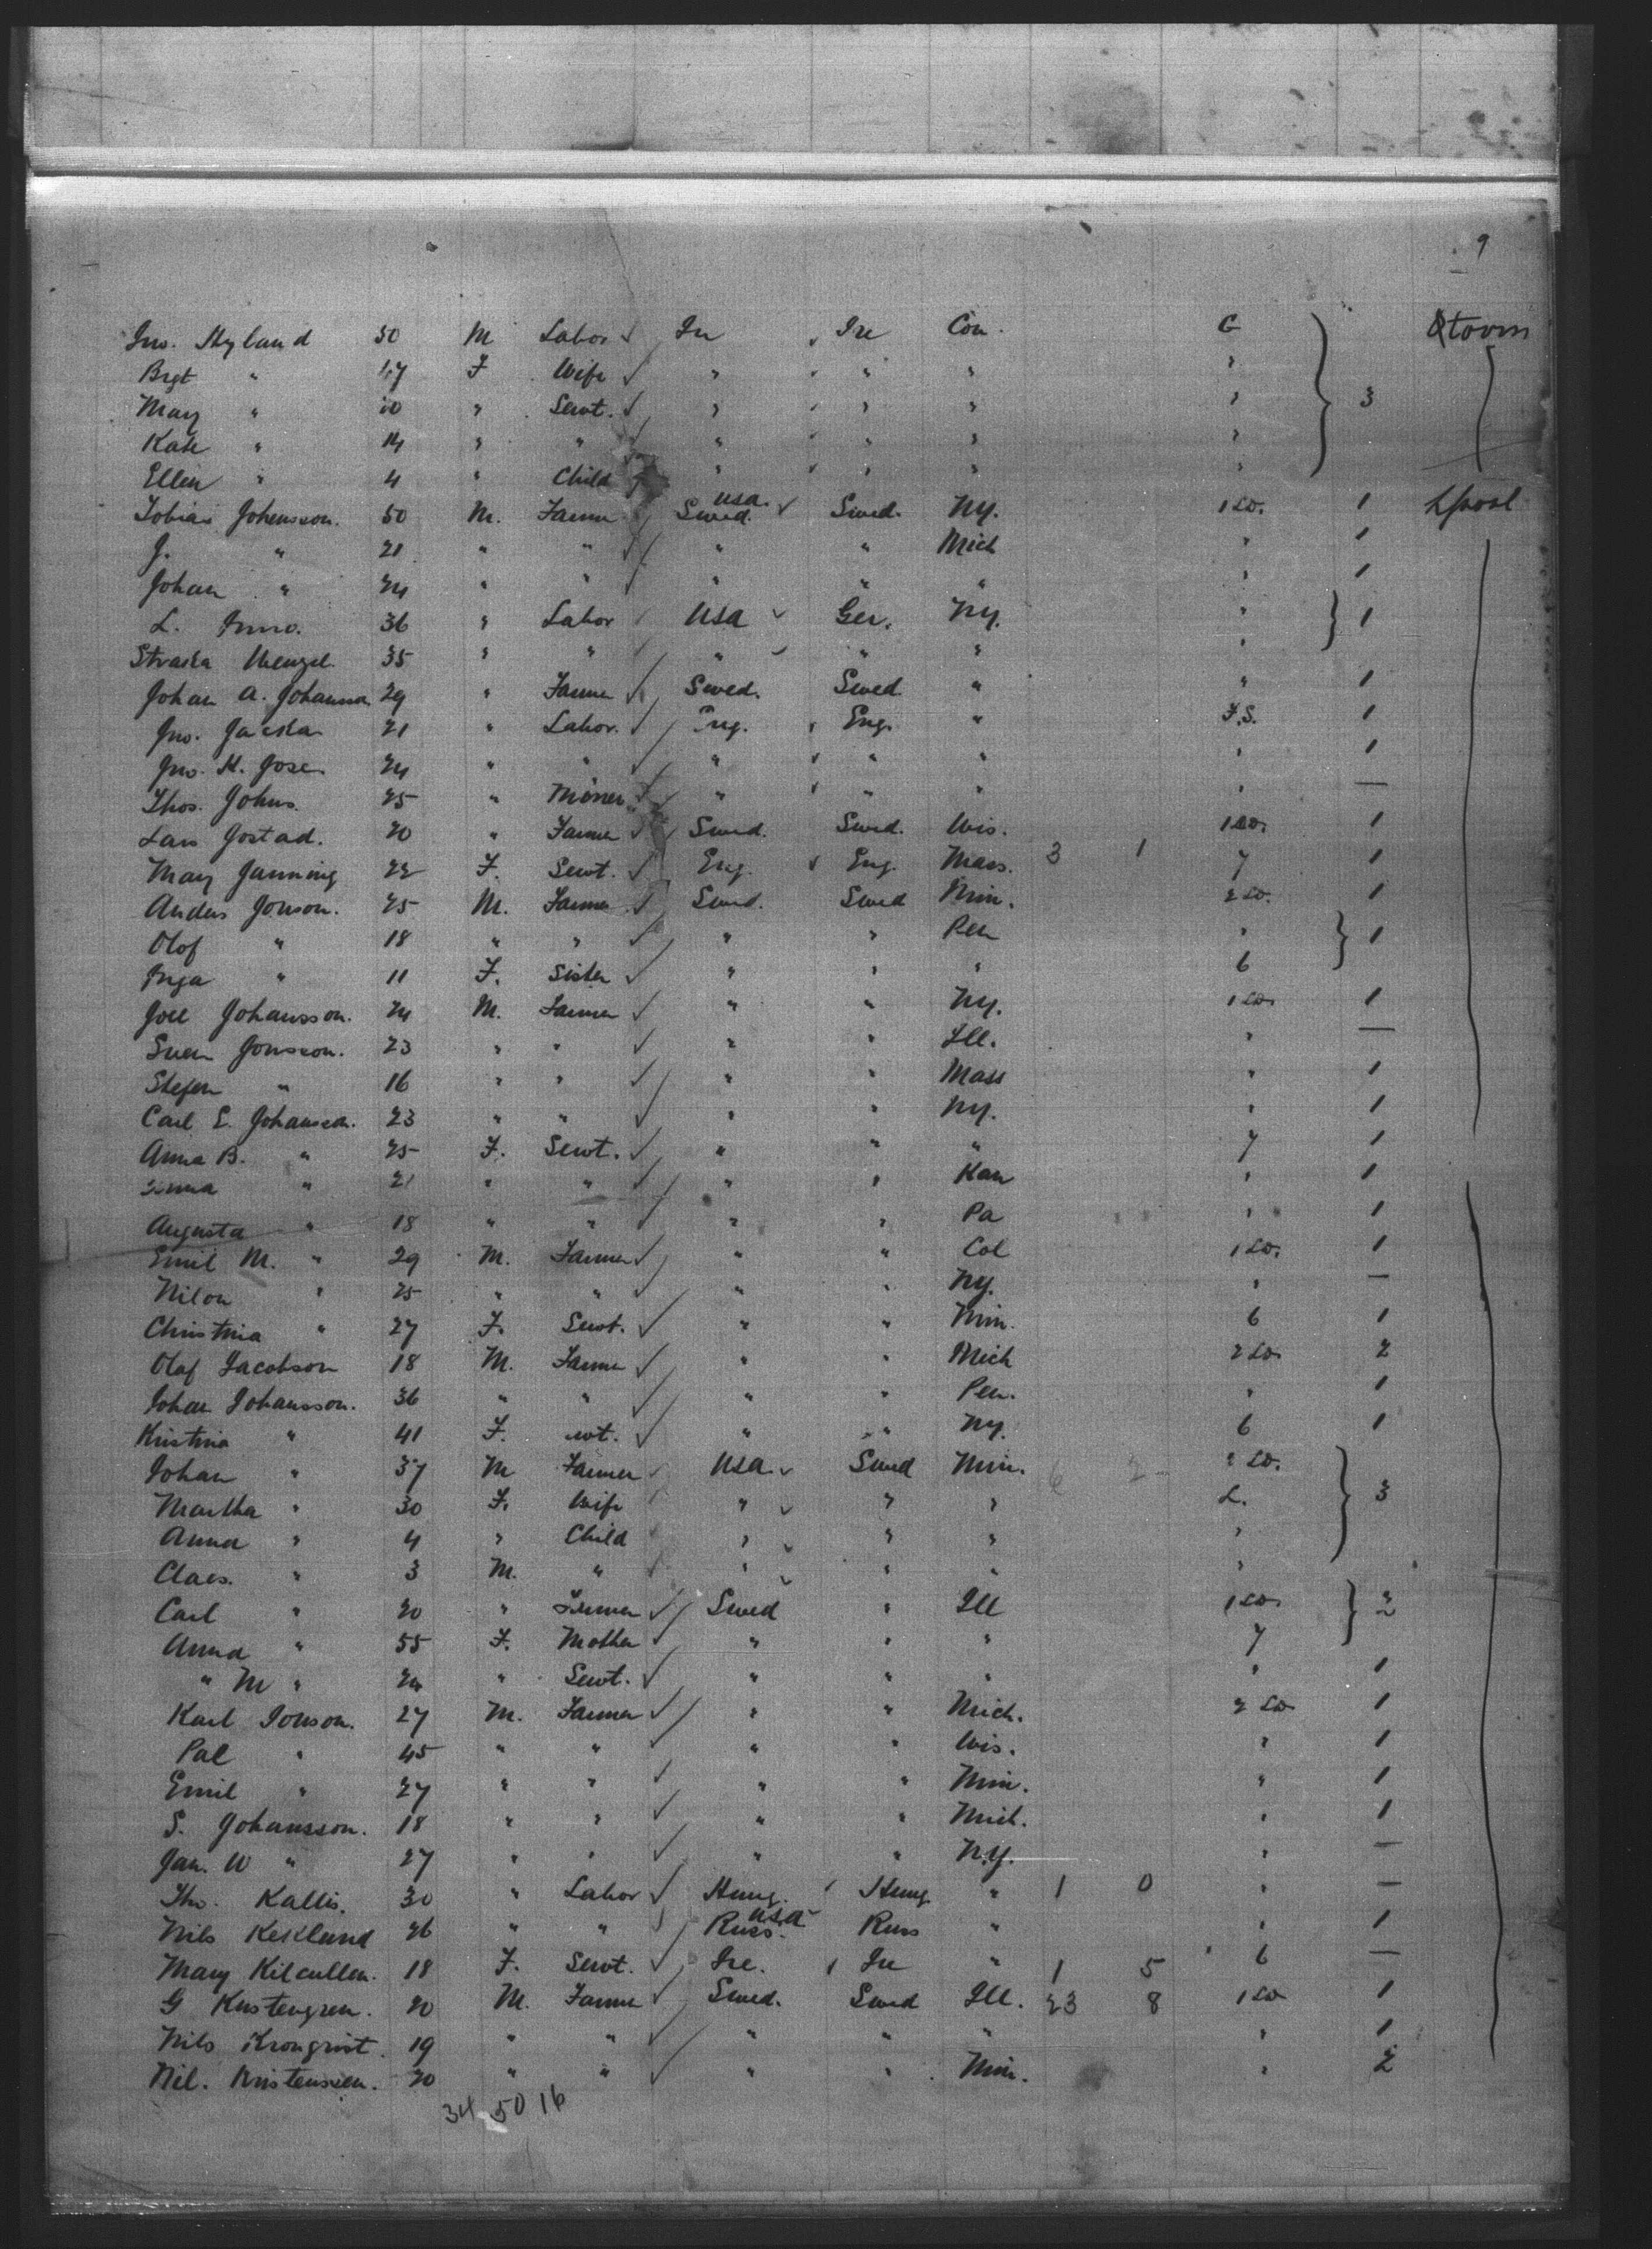 9
Jno. Hyland 50 M Labor Ire Ire Con. G Qtown
Brgt " 47 F Wife " " " "
Mary " 20 " Servt. " " " " 3
Kate " 14 " " " " " "
Ellen " 4 " Child " " " "
Tobias Johansson. 50 M. Farmer USA Swed. Swed. NY. 1 LD. 1 Lpool
J. " 21 " " " " Mich " 1
Johan " 24 " " " " " " 1
L. 36 " Labor USA Ger. NY. " 1
Straska Wenzel. 35 " " " " " "
Johan A. Johanson 29 " Farmer Swed. Swed " " 1
Jno. Jacka 21 " Labor. Eng. Eng. " F.S. 1
Jno. H. Jose 24 " " " " " " 1
Thos. Johns. 25 " Miner " " " " —
Lars Jostad. 20 " Farmer Swed. Swed. Wis. 1 LD. 1
Mary Janning 22 F. Servt. Eng. Eng. Mass. 3 1 7 1
Anders Jonson. 25 M. Farmer Swed. Swed Min. 2 LD. 1
Olof " 18 " " " " Pen " 1
Inga " 11 F. Sister " " " 6
Joel Johansson. 24 M. Farmer " " NY. 1 LD. 1
Sven Jonsson. 23 " " " " Ill. " —
Stefen " 16 " " " " Mass " 1
Carl E. Johanson. 23 " " " " NY. " 1
Anna B. " 25 F. Servt. " " " 7 1
" 21 " " " " Kan " 1
Augusta " 18 " " " " Pa " 1
Emil M. " 29 M. Farmer " " Col 1 LD. 1
Nilon " 25 " " " " NY. " —
Christina " 27 F. Servt. " " Min. 6 1
Olof Jacobson 18 M. Farmer " " Mich 2 LD. 2
Johan Johansson. 36 " " " " Pen. " 1
Kristina " 41 F. vt. " " NY. 6 1
Johan " 37 M Farmer USA Swed Min. 6 2 2 LD. 3
Martha " 30 F. Wife " " " L.
Anna " 4 " Child " " " "
Claes. " 3 M. " " " " "
Carl " 20 " Farmer Swed " Ill 1 LD. 2
Anna " 55 F. Mother " " " 7
" M " 24 " Servt. " " " " 1
Karl Jonson. 27 M. Farmer " " Mich. 2 LD. 1
Pal " 45 " " " " Wis. " 1
Emil " 27 " " " " Min. " 1
S. Johansson. 18 " " " " Mich. " 1
Jan. W " 27 " " " " N.Y. " —
Tho. Kallis. 30 " Labor Hung. Hung. " 1 0 " —
Nils Keklund 26 " " USA Russ. Russ " " 1
Mary Kilcullen. 18 F. Servt. Ire. Ire " 1 5 6 —
G Kustengren. 20 M. Farmer Swed. Swed Ill. 23 8 1 LD 1
Nils Kronqvist. 19 " " " " " " 1
Nil. Kristensen. 20 " " " " Min. " 2
34 50 16